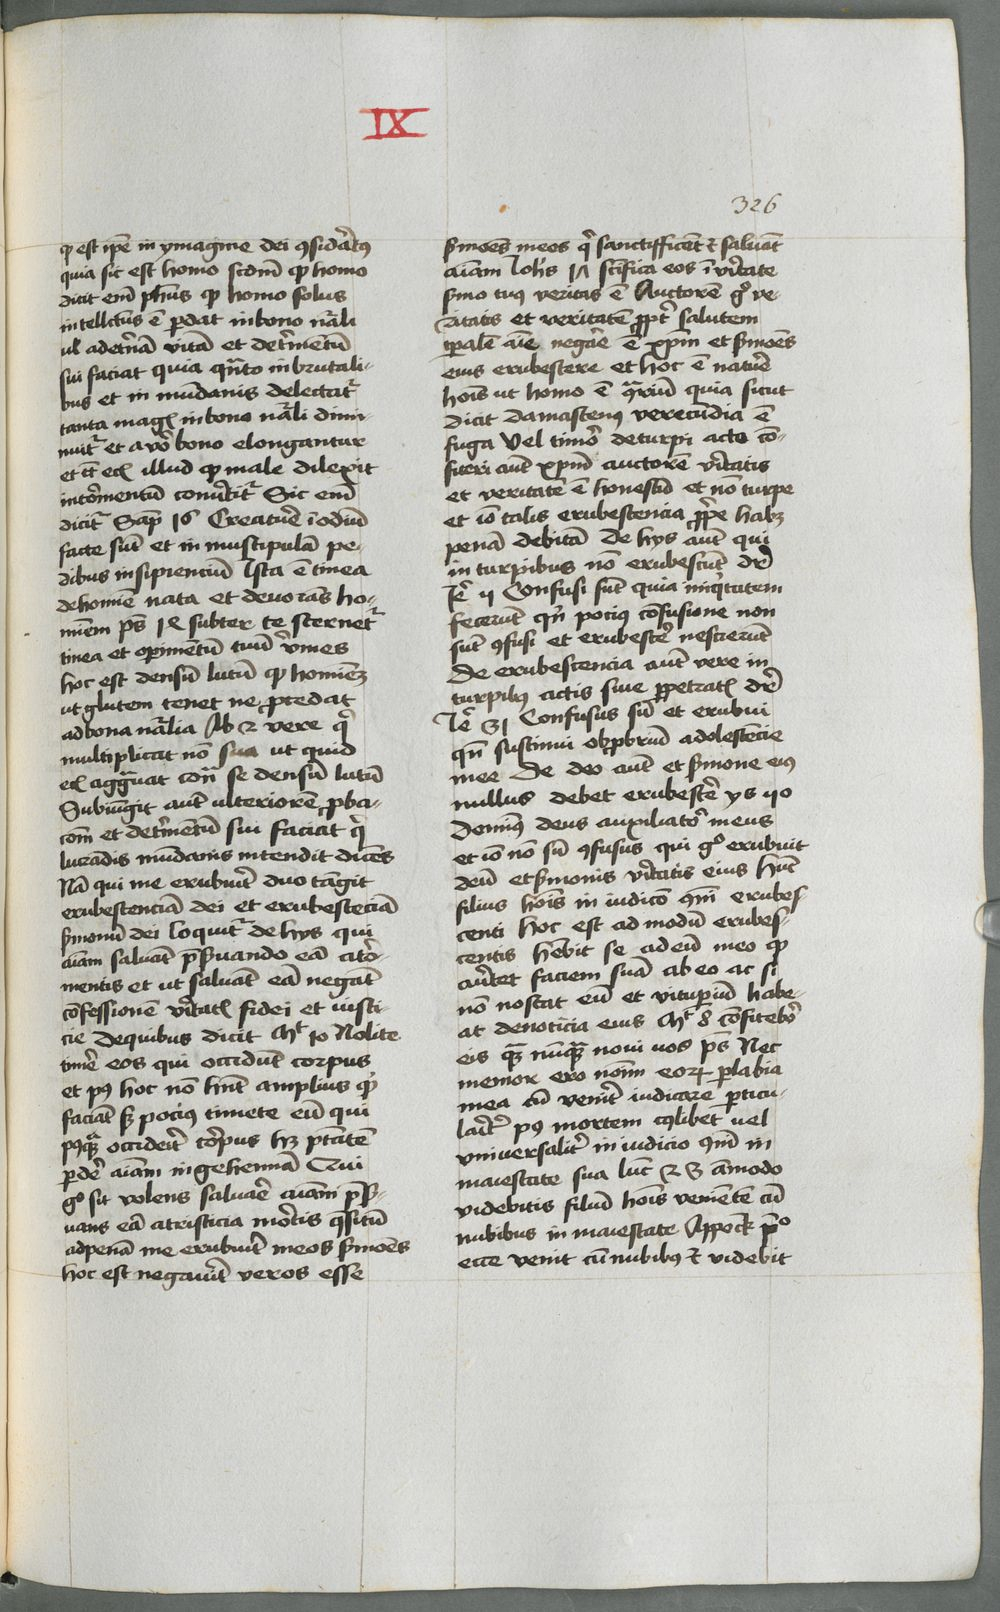 IX
326
qͥ est ip̄e in ymagine dei ꝯsid̓atꝰ
quia sic est homo scdm̄ qͥ homo
dicit em̄ ph̄us qͥ homo solus
intellctus ē ꝑdat in bono nr̄ali
ul̓ ad et̓nā vitā et det̓mentū
sui faciat quia qn̄to in brutali-
bus et in mūdanis delectat᷑
tanta magꝭ in bono nr̄ali dimi-
nuit᷑ et a vo̓ bono elongantur
illud qͥ male dilexit
in to̓mentū conu̓tit᷑ Sic em̄
dicit᷑ Sap̄ 16 Creatur̄e ī odiū
facte sūt et in muscipulā pe-
dibus insipientiū Ista ē tinea
de homīe nata et deuorās ho-
minem ps̄ 14 subter te sternet᷑
tinea et opimētū tuū v̓mes
hoc est densū lutū qͥ homiēꝫ
ut glutem tenet ne ꝓcedat
ad bona nr̄alia Ab 2 vere qͥ
multiplicat nō sua ut quid
aggrauat contra se densū lutū
Subiūgit aūt ulteriorē ꝓba-
com̄ et det̓mentū sui faciat qͥ
lucrādis mūdanis intendit dicēs
Nā qui me erubuit̓ duo tāgit
erubescenciā dei et erubesceciā
s̓monū dei loquit᷑ de hys qui
aīam saluāt ꝑs̓uando eā a to̓-
mentis et ut saluāt eā negāt
cōfessionē v̓itatꝭ fidei et iusti-
cie de quibus dicit Mᵗ 10 Nolite
time̓ eos qui occidūt corpus
et pꝰ hoc nō hn̄t amplius qͥd
faciāt sꝫ pocius timete eū qui
pꝰqͣ occideit̓ co̓pus hꝫ ptātē
ꝑde̓ aīam in gehennā Qui
gͦ sit volens saluar̄e aīam ꝑs̓-
uans eā a tristicia mo̓tis q̄sitū
ad penā me erubuit̓ meos s̓mōes
hoc est negauit̓ veros esse
s̓mōes meos qͥ sanctifficēt et saluāt
aīam Joh̄s 17 sc̄ifica eos ī v̓itate
s̓mo tuꝰ veritas ē Auctorē gͦ ve-
ritatis et veritatē ꝓpt̓ salutem
tꝑalē aīe negar̄e ē xp̄m et s̓mōes
eius erubescere et hoc ē natur̄e
hoīs ut homo ē ꝯrīum quia sicut
dicit damascenus verecūdia ē
fuga vel timo̓ de turpi acto cō-
fiteri aūt xp̄m auctorē v̓itatis
et veritatē ē honestū et nō turpe
et iō talis erubescencia ꝓpͥe habꝫ
penā debitā De hys aūt qui
in turpibus nō erubescūt dr̄
Je̓ 11 Confusi sūt quia iniqͥtatem
fecerūt qn̄ pocius cōfusione non
sūt ꝯfusi et erubesce̓ nescierūt
De erubescencia aūt vere in
turpibꝰ actis siue ꝑpetratꝭ dr̄
Je̓ 31 Confusus sū et erubui
qn̄ sustinui obꝓbriū adolescēcie
mee De deo aūt et s̓mone eiꝰ
nullus debet erubesce̓ ys 50
Domiꝰ deus auxiliato̓ meus
et iō nō sū ꝯfusus qui gͦ erubuit
deū et s̓monis v̓itatis eius hūc
filius hoīs in iudico ꝯm̄ erubes-
centi hoc est ad modū erubes-
centis hēbit se ad eū meo qͥ
au̓tet faciem suā ab eo ac si
nō noscat eū et vitupiū habe-
at de noticia eius Mᵗ 8 cōfitebo̓
eis qꝫ nūqͣ noui uos ps̄ Nec
memor ero noīm eorꝝ ꝑ labia
mea cū venit̓ iudicare ꝑticu-
larit̓ pꝰ mortem cꝯlibet uel
vniuersalit̓ in iudicio ꝯm̄ in
maiestate sua luc̄ 23 āmodo
videbitis filiū hoīs veniētē cū
nubibus in maiestate Appoc̄ pͦ
ecce venit cū nubibꝰ et videbit